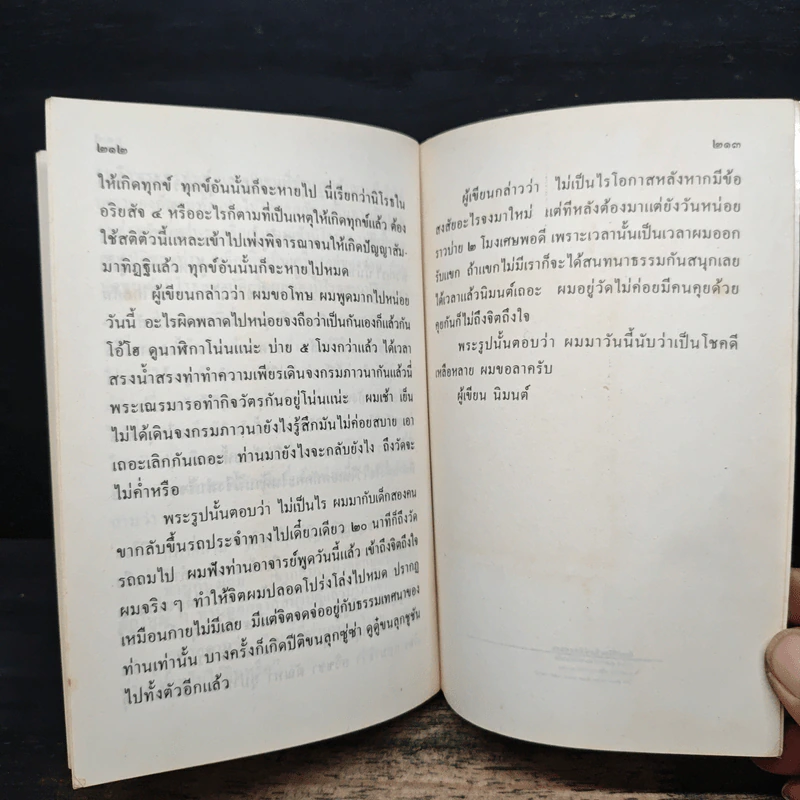 ๒๑๒
ให้เกิดทุกข์ ทุกข์อันนั้นก็จะหายไป นี่เรียกว่านิโรธใน
อริยสัจ ๔ หรืออะไรก็ตามที่เป็นเหตุให้เกิดทุกข์แล้ว ต้อง
ใช้สติตัวนี้แหละเข้าไปเพ่งพิจารณาจนให้เกิดปัญญาสัม-
มาทิฏฐิแล้ว ทุกข์อันนั้นก็จะหายไปหมด
ผู้เขียนกล่าวว่า ผมขอโทษ ผมพูดมากไปหน่อย
วันนี้ อะไรผิดพลาดไปหน่อยจงถือว่าเป็นกันเองก็แล้วกัน
โอ้โฮ ดูนาฬิกาโน่นแน่ะ บ่าย ๕ โมงกว่าแล้ว ได้เวลา
สรงน้ำสรงท่าทำความเพียรเดินจงกรมภาวนากันแล้วนี่
พระเณรมารอทำกิจวัตรกันอยู่โน่นแน่ะ ผมเช้า เย็น
ไม่ได้เดินจงกรมภาวนายังไงรู้สึกมันไม่ค่อยสบาย เอา
เถอะเลิกกันเถอะ ท่านมายังไงจะกลับยังไง ถึงวัดจะ
ไม่ค่ำหรือ
พระรูปนั้นตอบว่า ไม่เป็นไร ผมมากับเด็กสองคน
ขากลับขึ้นรถประจำทางไปเดี๋ยวเดียว ๒๐ นาทีก็ถึงวัด
รถถมไป ผมฟังท่านอาจารย์พูดวันนี้แล้ว เข้าถึงจิตถึงใจ
ผมจริง ๆ ทำให้จิตผมปลอดโปร่งโล่งไปหมด ปรากฏ
เหมือนกายไม่มีเลย มีแต่จิตจดจ่ออยู่กับธรรมเทศนาของ
ท่านเท่านั้น บางครั้งก็เกิดปีติขนลุกซู่ซ่า คูคู้ขนลุกชูชัน
ไปทั้งตัวอีกแล้ว
๒๑๓
ผู้เขียนกล่าวว่า ไม่เป็นไรโอกาสหลังหากมีข้อ
สงสัยอะไรจงมาใหม่ แต่ทีหลังต้องมาแต่ยังวันหน่อย
ราวบ่าย ๒ โมงเศษพอดี เพราะเวลานั้นเป็นเวลาผมออก
รับแขก ถ้าแขกไม่มีเราก็จะได้สนทนาธรรมกันสนุกเลย
ได้เวลาแล้วนิมนต์เถอะ ผมอยู่วัดไม่ค่อยมีคนคุยด้วย
คุยกันก็ไม่ถึงจิตถึงใจ
พระรูปนั้นตอบว่า ผมมาวันนี้นับว่าเป็นโชคดี
เหลือหลาย ผมขอลาครับ
ผู้เขียน นิมนต์